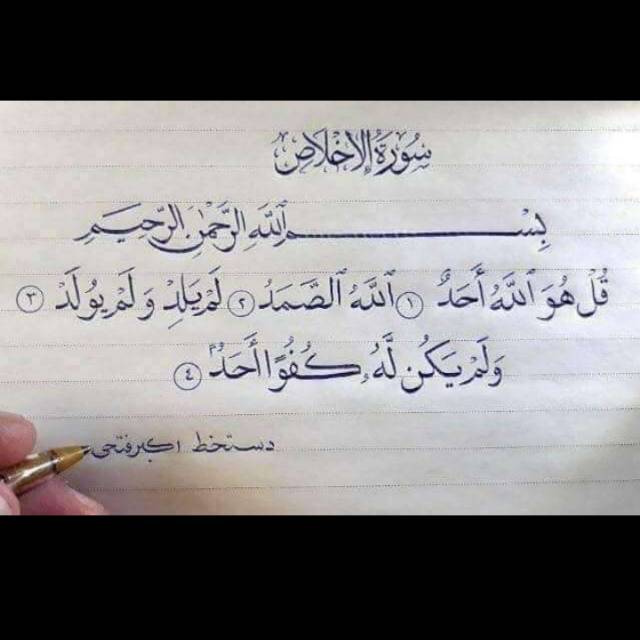 سُورَةُ الإِخْلَاصِ
بِسْمِ ٱللَّهِ الرَّحْمَٰنِ الرَّحِيمِ
قُلْ هُوَ ٱللَّهُ أَحَدٌ ١ ٱللَّهُ ٱلصَّمَدُ ٢ لَمْ يَلِدْ وَلَمْ يُولَدْ ٣
وَلَمْ يَكُن لَّهُۥ كُفُوًا أَحَدٌۢ ٤
دستخط اکبر فتحی